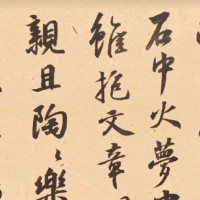 石中火夢
雖抱文章
親且陶〻樂